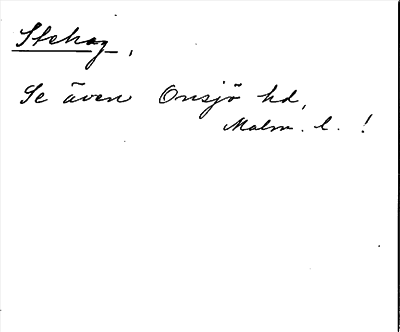 Stehag,
Se även Onsjö hd,
Malm. l. !